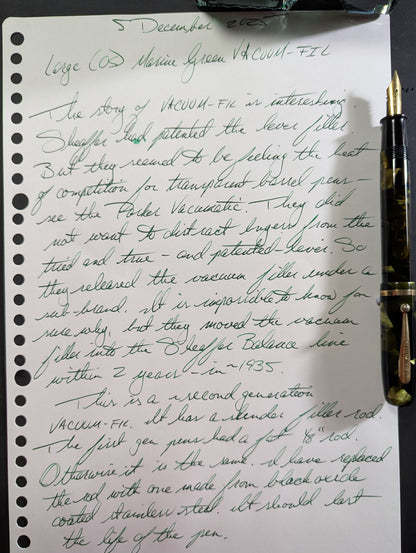 5 December 2025
Large (OS) Marine Green VACUUM-FIL
The story of VACUUM-FIL is interesting.
Sheaffer had patented the lever filler.
But they seemed to be feeling the heat
of competition for transparent barrel pens -
see the Parker Vacumatic. They did
not want to distract buyers from the
tried and true - and patented - lever. So
they released the vacuum filler under a
sub-brand. It is impossible to know for
sure why, but they moved the vacuum
filler into the Sheaffer Balance line
within 2 years - in ~1935.
This is a ~ second generation
VACUUM-FIL. It has a slender filler rod.
The first gen pens had a fat 1/8" rod.
Otherwise it is the same. I have replaced
the rod with one made from black oxide
coated stainless steel. It should last
the life of the pen.